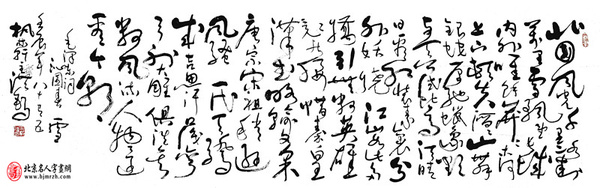 北国风光千里冰封
万里雪飘望长城
内外惟余莽莽大河
上下顿失滔滔山舞
银蛇原驰蜡象欲
与天公试比高须晴
日看红装素裹分
外妖娆江山如此多
娇引无数英雄
竞折腰惜秦皇
汉武略输文采
唐宗宋祖稍逊
风骚一代天骄
成吉思汗只识弯
弓射大雕俱往矣
数风流人物还
看今朝
毛泽东词
沁园春雪
壬辰年八月
北京名人字画网
www.bjmrzh.com